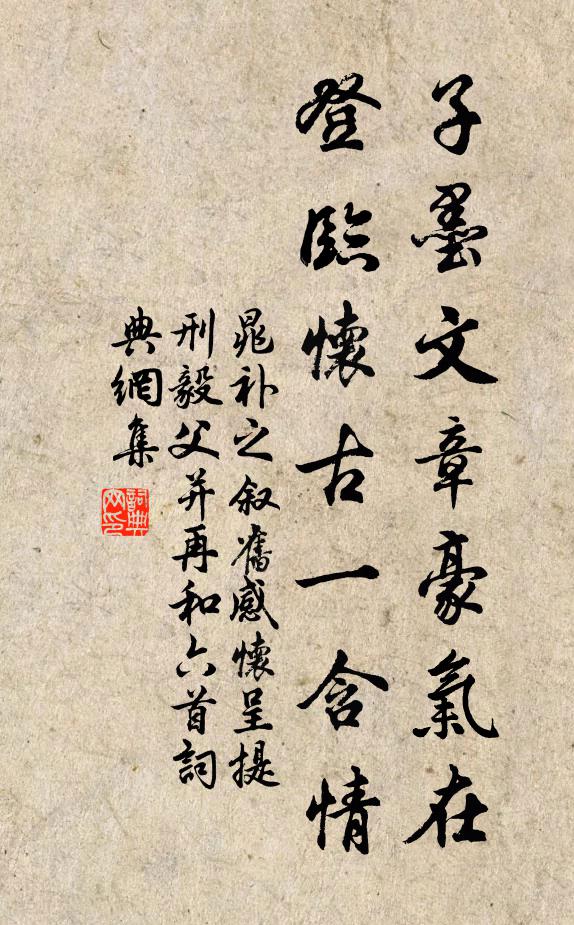 子墨文章豪氣在
登臨懷古一含情
晁补之叙舊感懷呈提
刑毅父并再和六首詞
典網集
詞典
网印